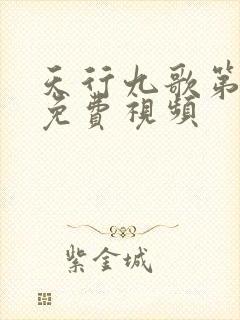 天行九歌第
免費視頻
紫金城